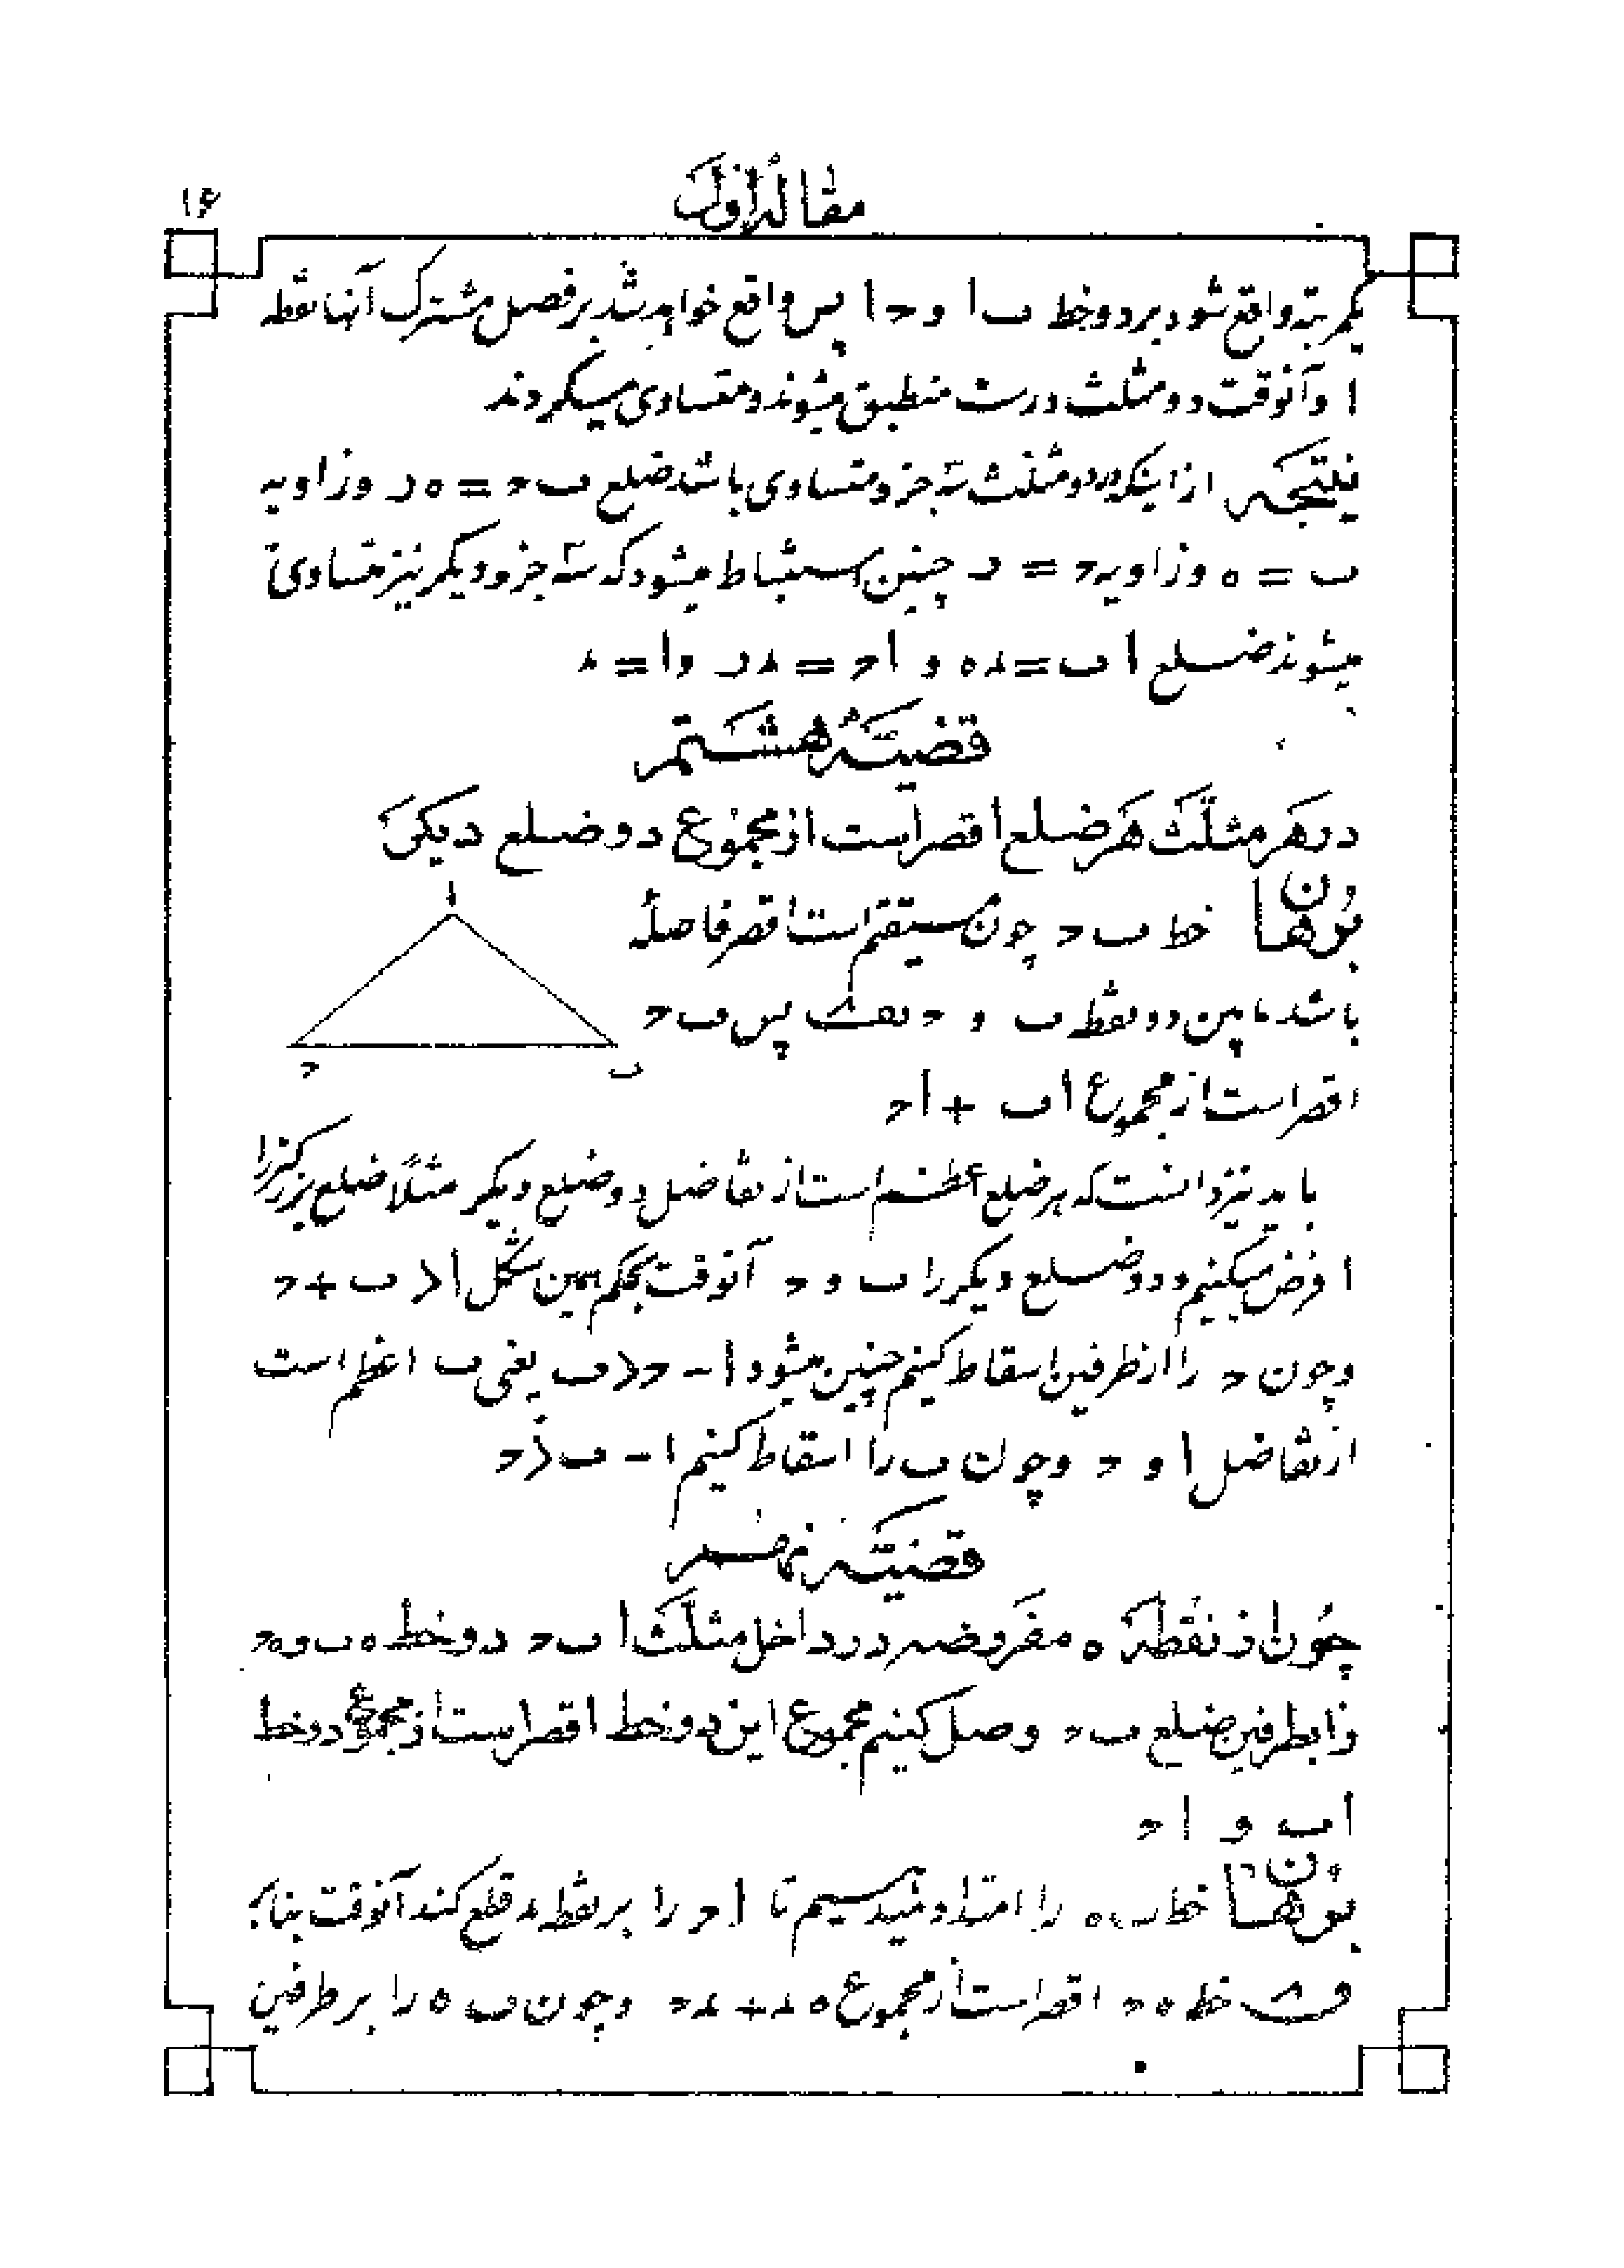 مقاله اول
۱۶
یکمرتبه واقع شود بر دو خط ب ا و ح ا پس واقع خواهد شد بر فصل مشترک آنها نقطه
ا و آنوقت دو مثلث درست منطبق میشوند و متساوی میگردند
نتیجه از اینکه در دو مثلث سه جزو متساوی باشد ضلع ب ح = ه ر و زاویه
ب = ه و زاویه ح = ر چنین استنباط میشود که سه جزو دیگر نیز متساوی
میشوند ضلع ا ب = د ه و ا ح = د ر و ا = د
قضیه هشتم
در هر مثلث هر ضلع اقصر است از مجموع دو ضلع دیگر
برهان خط ب ح چون مستقیم است اقصر فاصله
باشد مابین دو نقطه ب و ح پس ب ح
اقصر است از مجموع ا ب + ا ح
ا
ح
ب
باید نیز دانست که هر ضلع اعظم است از تفاضل دو ضلع دیگر مثلاً ضلع بزرگتر را
ا فرض میکنیم و دو ضلع دیگر را ب و ح آنوقت بحکم همین شکل ا < ب + ح
و چون ح را از طرفین اسقاط کنیم چنین میشود ا - ح < ب یعنی ب اعظم است
از تفاضل ا و ح و چون ب را اسقاط کنیم ا - ب < ح
قضیه نهم
چون از نقطه ه مفروضه در داخل مثلث ا ب ح دو خط ه ب و ه ح
را بطرفین ضلع ب ح وصل کنیم مجموع این دو خط اقصر است از مجموع دو خط
ا ب و ا ح
برهان خط ب ه را امتداد میدهیم تا ا ح را بر نقطه د قطع کند آنوقت بنا بر
خط ه ح اقصر است از مجموع ه د + د ح و چون ب ه را بر طرفین